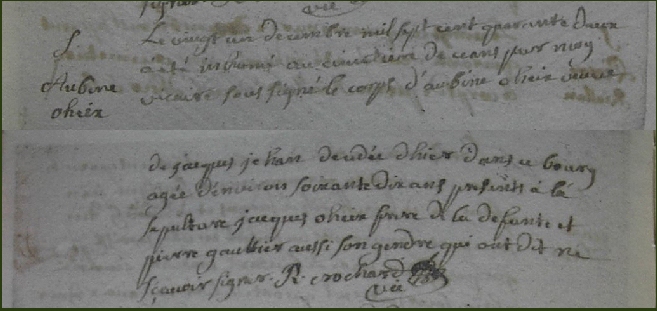 S.
Aubine
ohier
Le vingt un decembre mil sept cent quarante deux
a été inhumé au cimetiere de ceans par moy
vicaire sous signé le corps d'aubine ohier veuve
de jacques jehan decedée d'hier dans ce bourg
agée d'environ soixante dix ans presents à la
sepulture jacques ohier frere de la defunte et
pierre gaultier aussi son gendre qui ont dit ne
sçavoir signer. R. crochard
vic